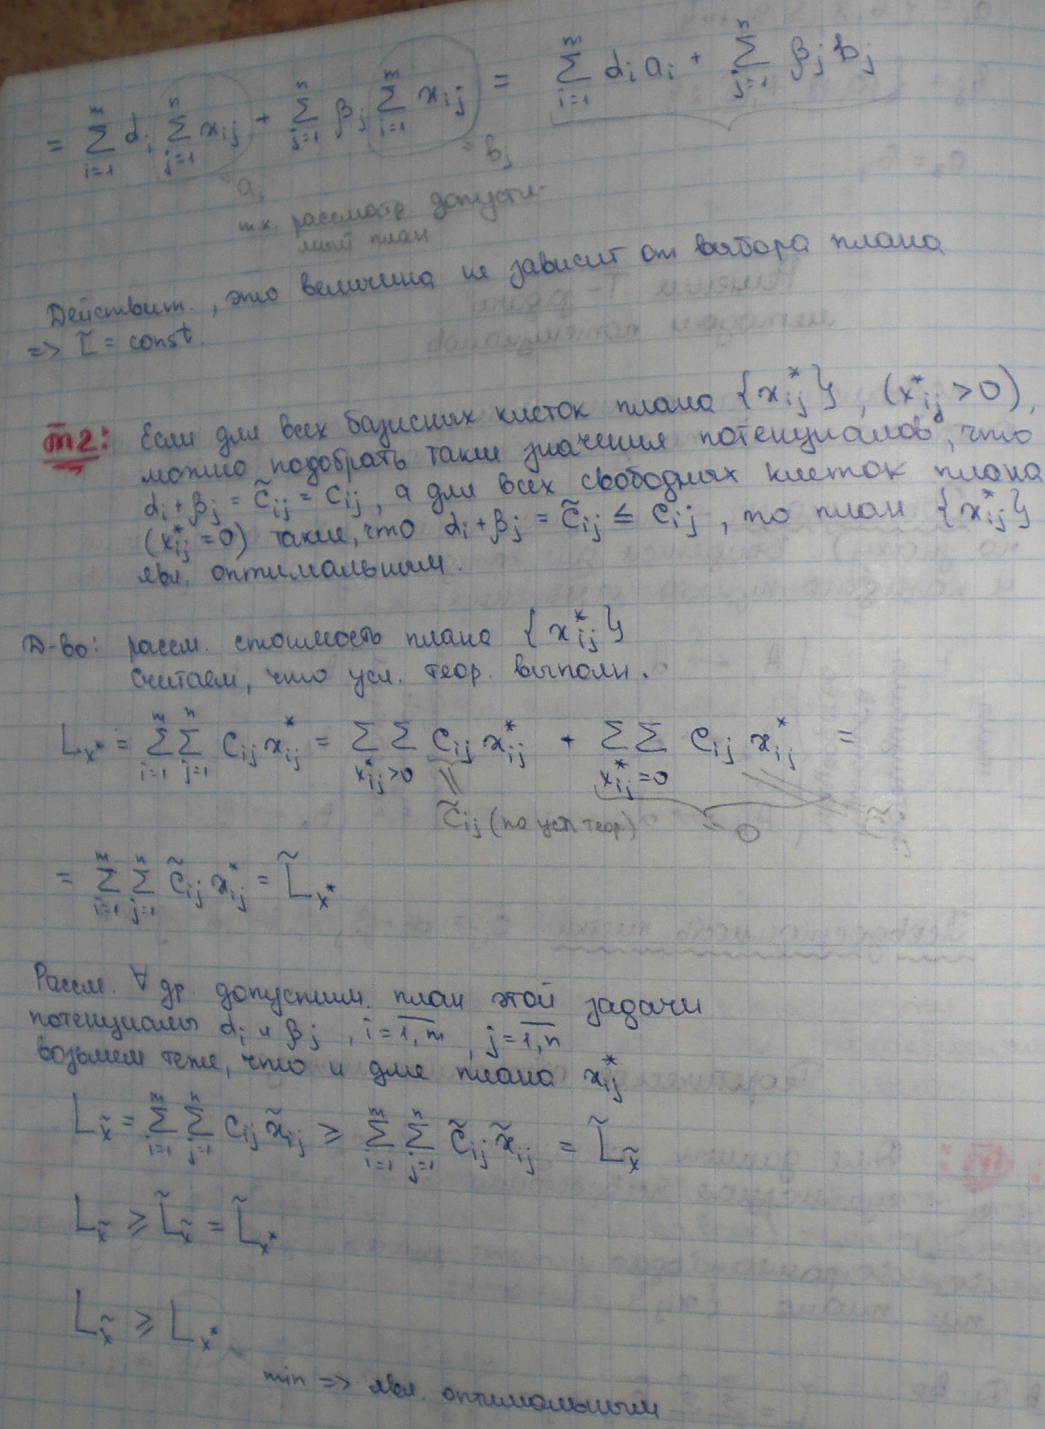 = ∑_{i=1}^{m} α_i ∑_{j=1}^{n} x_{ij} + ∑_{j=1}^{n} β_j ∑_{i=1}^{m} x_{ij} = ∑_{i=1}^{m} α_i a_i + ∑_{j=1}^{n} β_j b_j
= a_i
= b_j
т.к. рассмотр допусти-
мый план
Действит., это величина не зависит от выбора плана
=> L̃ = const.
т2: Если для всех базисных клеток плана {x*_{ij}}, (x*_{ij} > 0),
можно подобрать такие значения потенциалов, что
α_i + β_j = c̃_{ij} = c_{ij}, а для всех свободных клеток плана
(x*_{ij} = 0) такие, что α_i + β_j = c̃_{ij} ≤ c_{ij}, то план {x*_{ij}}
явл. оптимальным.
Д-во: рассм. стоимость плана {x*_{ij}}
Считаем, что усл. теор. выполн.
L_{x*} = ∑_{i=1}^{m} ∑_{j=1}^{n} c_{ij} x*_{ij} = ∑∑_{x*_{ij}>0} c_{ij} x*_{ij} + ∑∑_{x*_{ij}=0} c_{ij} x*_{ij} =
c̃_{ij} (по усл теор)
= 0
= ∑_{i=1}^{m} ∑_{j=1}^{n} c̃_{ij} x*_{ij} = L̃_{x*}
Рассм. ∀ др. допустим. план этой задачи
потенциалы α_i и β_j, i = 1,m, j = 1,n
возьмем теже, что и для плана x*_{ij}
L_{x̃} = ∑_{i=1}^{m} ∑_{j=1}^{n} c_{ij} x̃_{ij} ≥ ∑_{i=1}^{m} ∑_{j=1}^{n} c̃_{ij} x̃_{ij} = L̃_{x̃}
L_{x̃} ≥ L̃_{x̃} = L̃_{x*}
L_{x̃} ≥ L_{x*}
min => явл. оптимальным